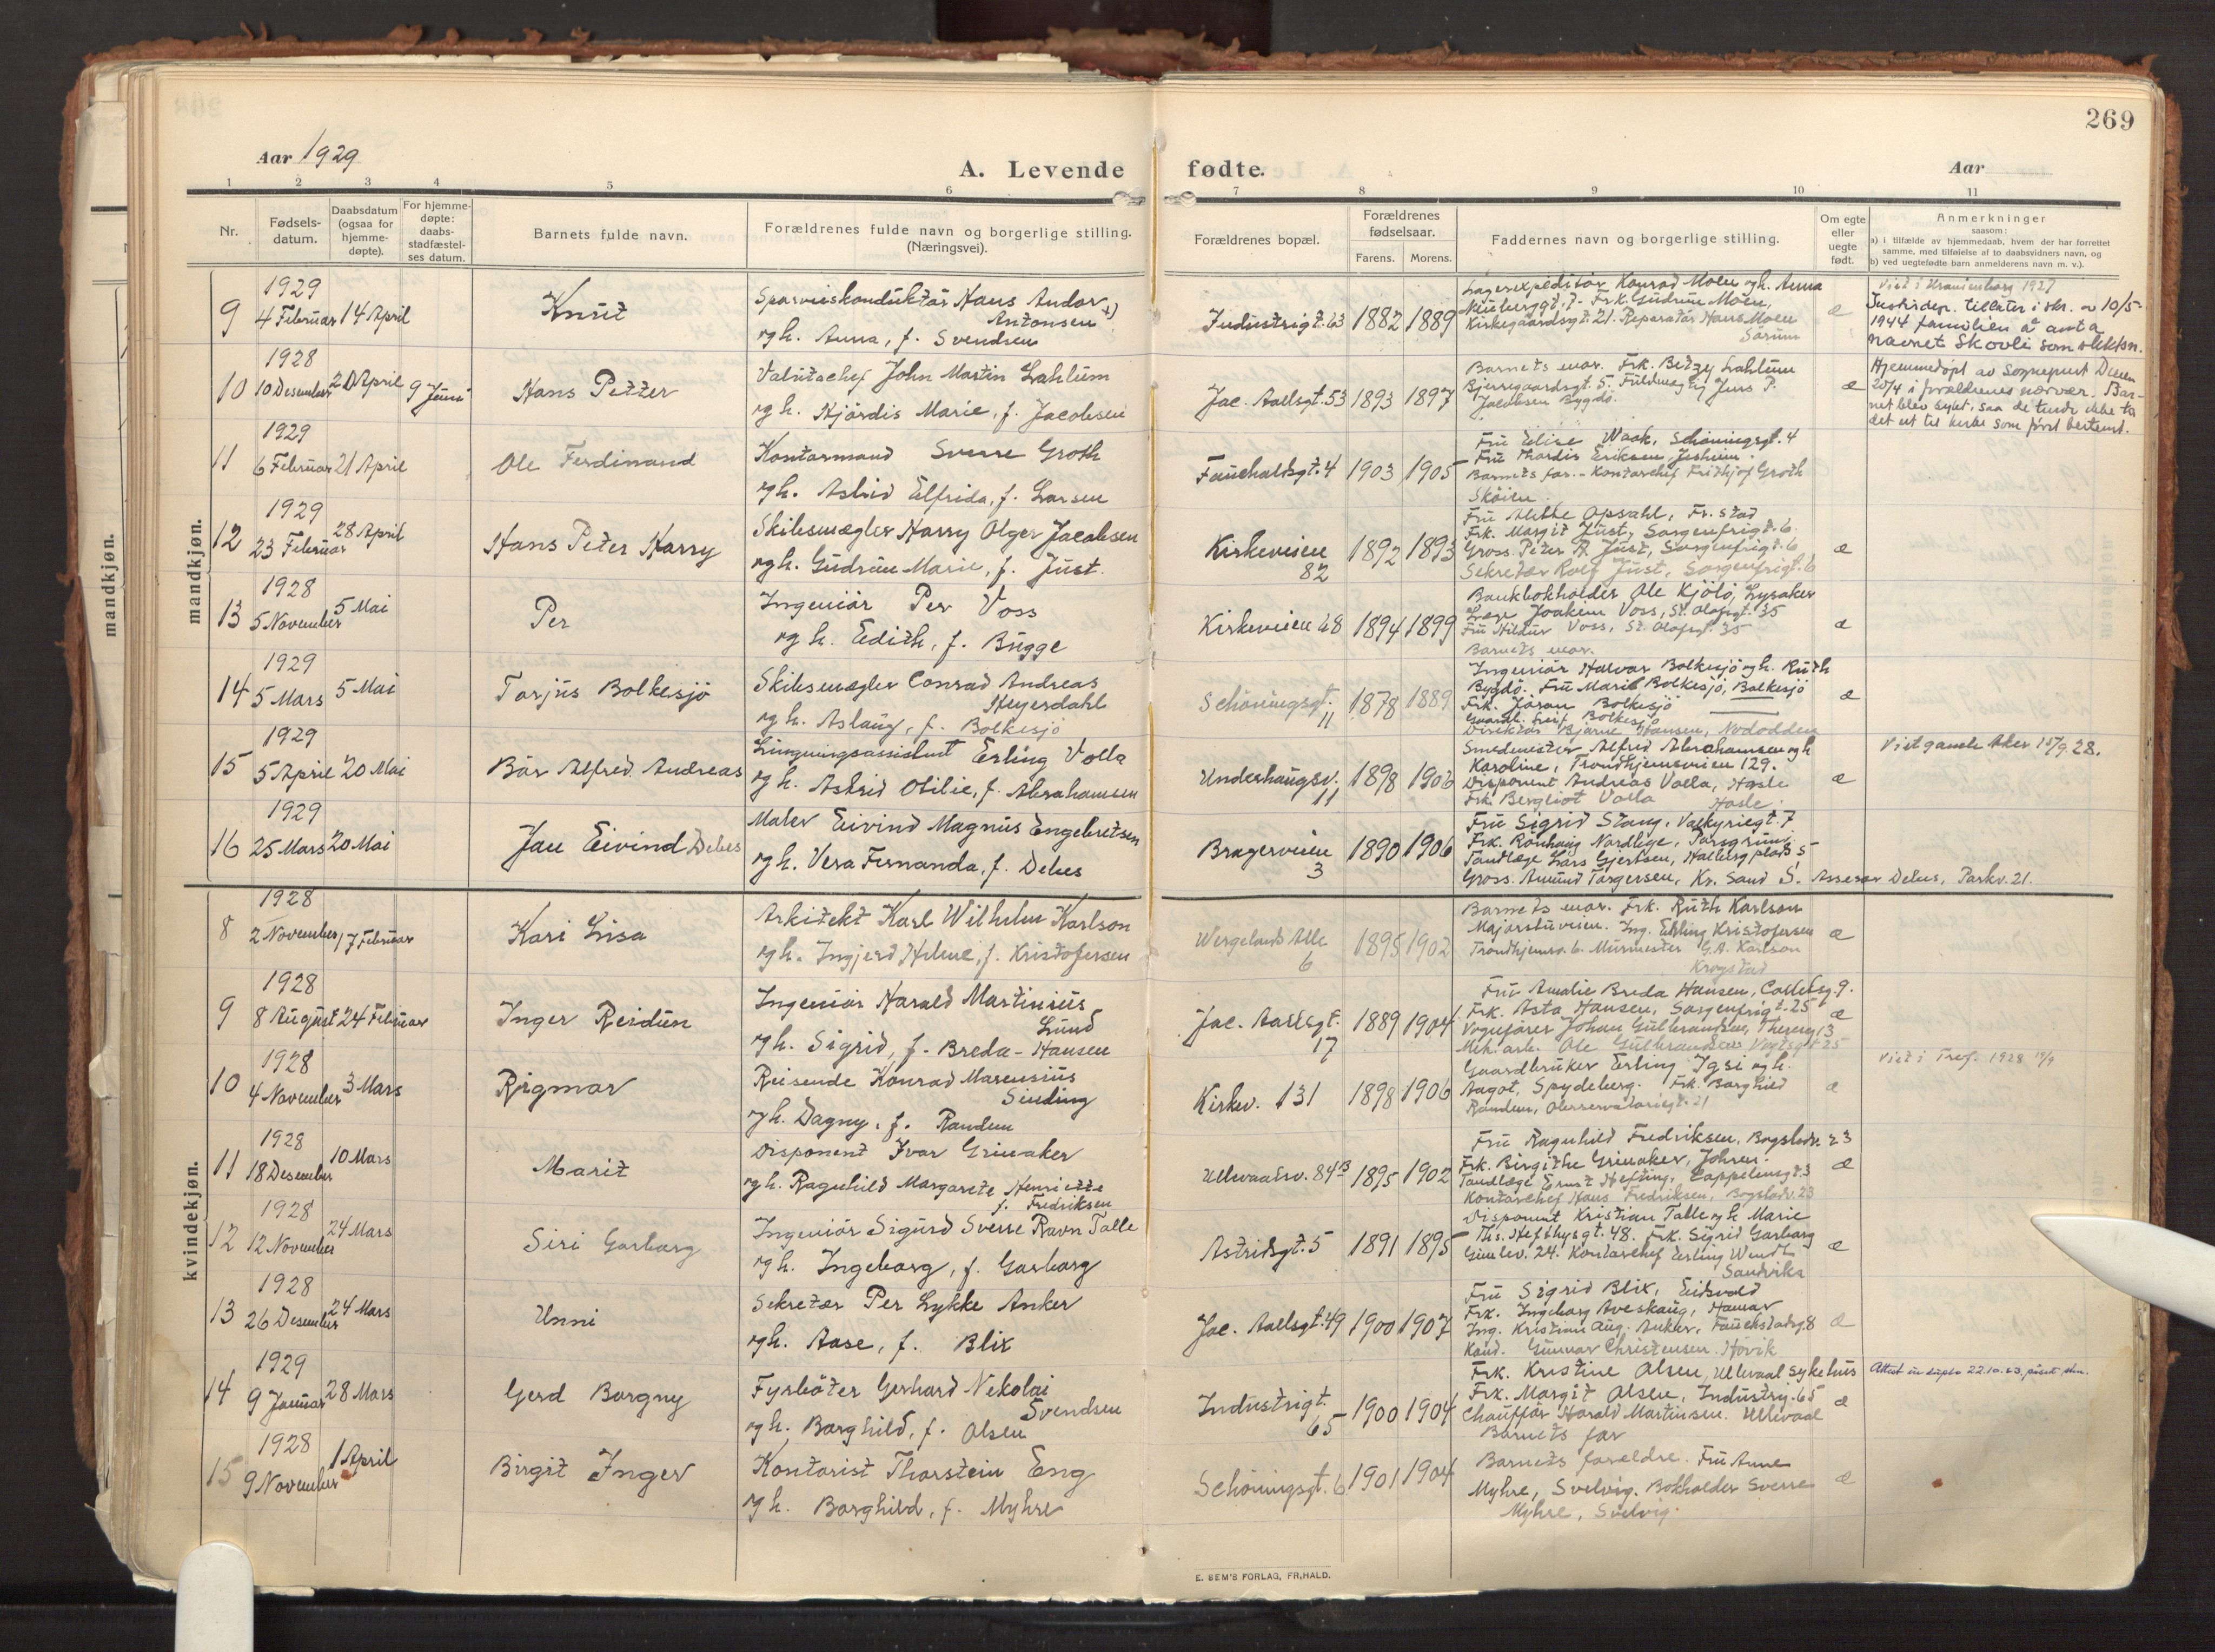 269
Aar 1929
A. Levende fødte.
Aar
1 2 3 4 5 6 7 8 9 10 11
Nr.
Fødsels-
datum.
Daabsdatum
(ogsaa for
hjemme-
døpte).
For hjemme-
døpte:
daabs-
stadfæstel-
ses datum.
Barnets fulde navn.
Forældrenes fulde navn og borgerlige stilling.
(Næringsvei).
Forældrenes bopæl.
Forældrenes
fødselsaar.
Farens. Morens.
Faddernes navn og borgerlige stilling.
Om egte
eller
uegte
født.
Anmerkninger
saasom:
a) i tilfælde av hjemmedaab, hvem der har forrettet
samme, med tilføielse af to daabsvidners navn, og
b) ved uegtefødte barn anmelderens navn m. v.).
mandkjøn.
mandkjøn.
1929
9 4 Februar 14 April
Knut
Sporveiskonduktør Hans Andor
Antonsen +)
og h. Anna, f. Svendsen
Industrigt. 63 1882 1889
Lagerexpeditør Konrad Moen og h. Anna
Frk. Gudrun Moen,
Kirkegaardsgt. 21. Reparatør Hans Moen
Sørum
æ
Viet i Uranienborg 1927
Justisdep. tillater i skr. av 10/5-
1944 familien å anta
navnet Skovli som slektsn.
1928
10 10 Desember 20 April 9 Juni
Hans Petter
Valutachef John Martin Lahlum
og h. Hjørdis Marie, f. Jacobsen
Jac. Aallsgt. 53 1893 1897
Barnets mor. Frk. Betzy Lahlum
Bjerregaardsgt. 5. Fuldmægtig Jens P.
Jacobsen Bygdø.
æ
Hjemmedøpt av Sogneprest
20/4 i forældrenes nærvær. Bar-
net blev sykt, saa de turde ikke ta
det ut til kirke som først bestemt.
1929
11 6 Februar 21 April
Ole Ferdinand
Kontormand Sverre Groth
og h. Astrid Elfrida, f. Larsen
Fauchaldsgt. 4 1903 1905
Fru Elise Waak, Schøningsgt. 4
Fru Thordis Eriksen, Jesheim.
Barnets far. - Kontorchef Frithjof Groth
Skøien.
1929
12 23 Februar 28 April
Hans Peter Harry
Skibsmægler Harry Olger Jacobsen
og h. Gudrun Marie, f. Just.
Kirkeveien
82
1892 1893
Fru Alette Opsahl, Fr. stad
Frk. Margit Just, Sorgenfrigt. 6.
Gross. Peter A. Just, Sorgenfrigt. 6,
Sekretær Rolf Just, Sorgenfrigt. 6
æ
1928
13 5 November 5 Mai
Per
Ingeniør Per Voss
og h. Edith, f. Bugge
Kirkeveien 68 1894 1899
Bankbokholder Ole Kjölö, Lysaker
Læge Joakim Voss, St. Olafsgt. 35
Fru Hildur Voss, St. Olafsgt. 35
Barnets mor.
æ
1929
14 5 Mars 5 Mai
Torjus Bolkesjø
Skibsmægler Conrad Andreas
Heyerdahl
og h. Aslaug, f. Bolkesjø
Schøningsgt.
11
1878 1889
Ingeniør Halvor Bolkesjø og h. Ruth
Bygdø. Fru Marie Bolkesjø, Bolkesjø
Frk. Jøran Bolkesjø
Gaardb. Leif Bolkesj
Direktør Bjarne Hansen, Notodden
æ
1929
15 5 April 20 Mai
Bår Alfred Andreas
Ligningsassistent Erling Volla
og h. Astrid Otilie, f. Abrahamsen
Underhaugsv.
11
1898 1906
Smedmester Alfred Abrahamsen og h
Karoline, Trondhjemsveien 129.
Disponent Andreas Volla, Hasle
Frk. Bergliot Volla Hasle.
æ
Viet gamle Aker 15/9. 28.
1929
16 25 Mars 20 Mai
Jan Eivind Debes
Maler Eivind Magnus Engebretsen
og h. Vera Fernanda, f. Debes
Bragerveien
3
1890 1906
Fru Sigrid Stang, Valkyriegt. 7
Frk. Ronhaug Nordlige, Porsgrund
Tandlæge Lars Gjertsen, Holbergplads 5
Gross. Amund Torgersen, Kr. Sand S. Assessor Debes, Parkv. 21.
kvindekjøn.
1928
8 2 November 17 Februar
Kari Lisa
Arkitekt Karl Wilhelm Karlson
og h. Ingjerd Helene, f. Kristofersen
Wergelands Alle
6
1895 1902
Barnets mor. Frk. Ruth Karlson
Majorstuveien. Ing. Erling Kristofersen
Trondhjemsv. 6. Murmester G. A. Karlson
Krogstad
æ
1928
9 8 August 24 Februar
Inger Reidun
Ingeniør Harald Martinius
Lund
og h. Sigrid, f. Breda-Hansen
Jac. Aallsgt.
17
1889 1904
Fru Amalie Breda Hansen, 9.
Frk. Asta Hansen, Sorgenfrigt. 25
Vognfører Johan Gulbrandsen, Theresg 13
Mek. arb. Ole Gulbrandsen Vogtsgt 25
æ
1928
10 4 November 3 Mars
Rigmor
Reisende Konrad Marensius
Sinding
og h. Dagny, f. Randem
Kirkev. 131 1898 1906
Gaardbruker Erling Igsi og h.
Aagot, Spydeberg. Frk. Borghild
Randem, Observatoriegt. 21
æ
Viet i Tref. 1928
1928
11 18 Desember 10 Mars
Marit
Disponent Ivar Grinaker
og h. Ragnhild Margarete Henriette
f. Fredriksen
Ullevaalsv. 84 B 1895 1902
Fru Ragnhild Fredriksen, Bogstadv. 23
Frk. Birgithe Grinaker, Johren.
Tandlæge Ernst Hefting, Cappelensgt. 3
Kontorchef Hans Fredriksen, Bogstadv. 23
æ
1928
12 12 November 24 Mars
Siri Garborg
Ingeniør Sigurd Sverre Ravn Talle
og h. Ingeborg, f. Garborg
Astridsgt. 5 1891 1895
Disponent Kristian Talle og h Marie
Th. Heftyesgt. 48. Frk. Sigrid Garborg
Gimlev. 24. Kontorchef Erling Wendt
Sandvika
æ
1928
13 26 Desember 24 Mars
Unni
Sekretær Per Lykke Anker
og h. Aase, f. Blix
Jac. Aallsgt. 49 1900 1907
Fru Sigrid Blix, Eidsvold
Frk. Ingeborg Aveskaug, Hamar
Ing. Kristian Aug. Anker, 8
Kand. Gunnar Christensen. Høvik
æ
1929
14 9 Januar 28 Mars
Gerd Borgny
Fyrbøter Gerhard Nikolai
Svendsen
og h. Borghild, f. Olsen
Industrigt.
65
1900 1904
Frk. Kristine Olsen, Ullevaal sykehus
Frk. Margit Olsen, Industrig. 65
Chauffør Harald Martinsen. Ullevaal
Barnets far
æ
Attest in duplo 22.10.63,
1928
15 9 November 1 April
Birgit Inger
Kontorist Thorstein Eng
og h. Borghild, f. Myhre
Schøningsgt. 6 1901 1904
Barnets forældre. Fru Anne
Myhre, Svelvig. Bokholder Sverre
Myhre, Svelvig.
æ
E. SEM'S FORLAG, FR.HALD.